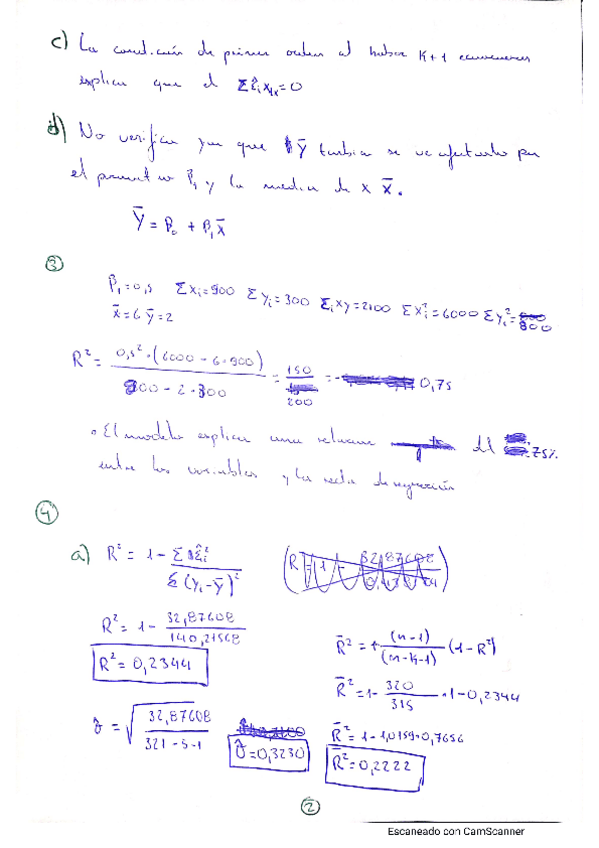 c) La condición de primer orden al haber K+1 ecuaciones
explica que el Σε̂ᵢxᵢₖ=0
d) No verifica ya que ȳ también se ve afectado por
el parametro β₁ y la media de x x̄.
ȳ = β₀ + β₁x̄
③
β̂₁=0,5 Σxᵢ=900 Σyᵢ=300 Σᵢxy=2100 Σxᵢ²=6000 Σyᵢ²=800
x̄=6 ȳ=2
R² = 0,5²·(6000-6·900) / 800-2·300 = 150/200 = 0,75
• El modelo explica una del 75%
entre las variables y la recta de regresión
④
a) R² = 1 - Σε̂ᵢ² / Σ(yᵢ-ȳ)²
R² = 1 - 32,87608 / 140,21568
R² = 0,2344
R̄² = 1 (n-1)/(n-k-1) (1-R²)
R̄² = 1- 320/315 · 1-0,2344
σ̂ = √(32,87608 / 321-5-1) σ̂=0,3230
R̄² = 1-1,0159·0,7656
R̄² = 0,2222
②
Escaneado con CamScanner